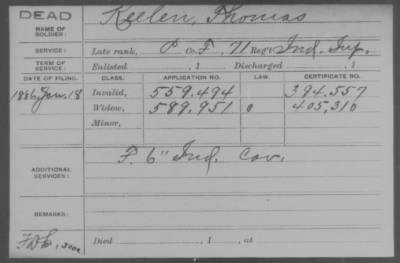 DEAD
NAME OF SOLDIER: Keelen, Thomas
SERVICE: Late rank, P Co. F, 71 Reg't Ind. Inf.
TERM OF SERVICE: Enlisted , 1 Discharged , 1
DATE OF FILING. CLASS. APPLICATION NO. LAW. CERTIFICATE NO.
1886, Jan. 18 Invalid, 559.494 394.557
Widow, 589.951 405,316
Minor,
ADDITIONAL SERVICES: F. 6" Ind. Cav.
REMARKS:
Died , 1 , at